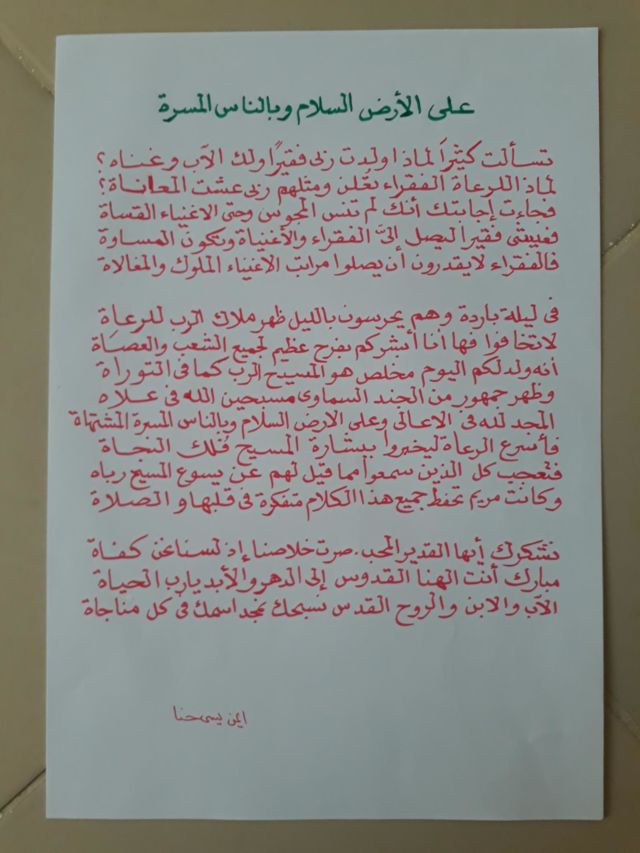 على الأرض السلام وبالناس المسرة
تسألت كثيراً لماذا ولدت ربى فقيراً ولك الآب وغناه؟
لماذا للرعاة الفقراء يعلن ومثلهم ربى عشت المعاناة؟
فجاءت إجابتك أنك لم تنس المجوس وحتى الاغنياء القساة
فمبيتى فقيراً ليصل إلىَّ الفقراء والأغنياة وتكون المساوة
فالفقراء لايقدرون أن يصلوا مراتب الاغنياء الملوك والمغالاة
فى ليلة باردة وهم يحرسون بالليل ظهر ملاك الرب للرعاة
لاتخافوا فها انا أبشركم بفرح عظيم لجميع الشعب والعصاة
أنه ولد لكم اليوم مخلص هو المسيح الرب كما فى التوراة
وظهر جمهور من الجند السماوى مسبحين الله فى علاه
المجد لله فى الاعالى وعلى الارض السلام وبالناس المسرة المشتهاة
فأسرع الرعاة ليخبروا ببشارة المسيح فُلك النجاة
فتعجب كل الذين سمعوا مما قيل لهم عن يسوع المسيح رباه
وكانت مريم تحفظ جميع هذا الكلام متفكرة فى قلبها والصلاة
نشكرك أيها القدير المحب. صرت خلاصنا إذ لسنا نحن كفاة
مبارك أنت الهنا القدوس إلى الدهر والأبد يارب الحياة
الآب والابن والروح القدس نسبحك نمجد اسمك فى كل مناجاة
ايمن يسى حنا